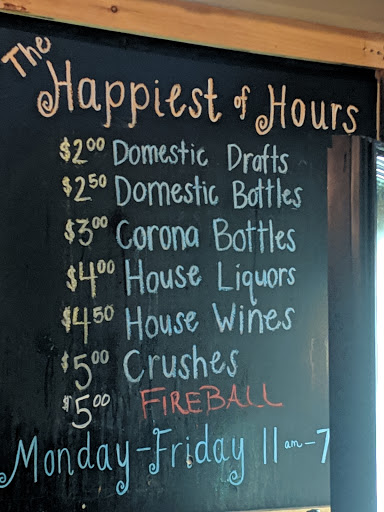 The
Happiest of Hours
$2.00 Domestic Drafts
$2.50 Domestic Bottles
$3.00 Corona Bottles
$4.00 House Liquors
$4.50 House Wines
$5.00 Crushes
$5.00 FIREBALL
Monday-Friday 11am-7